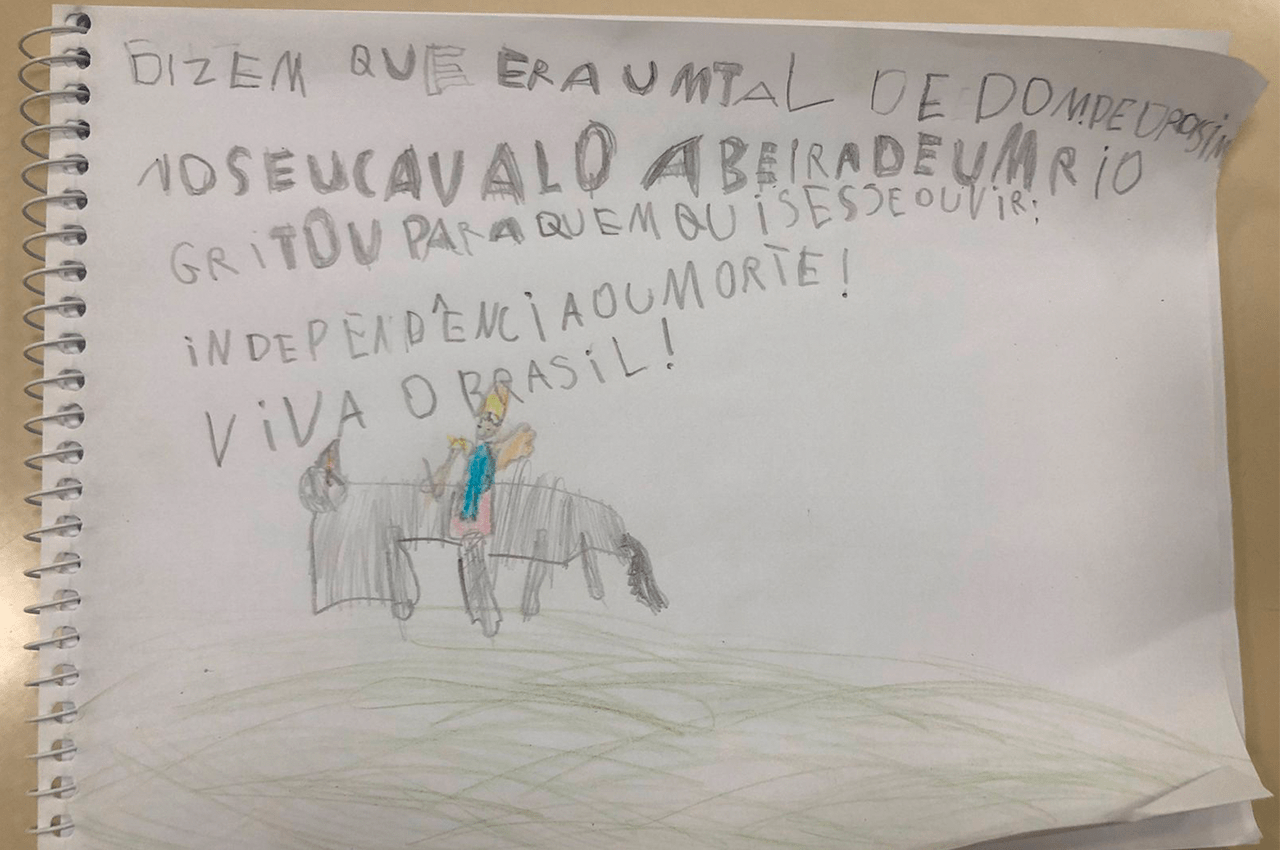 DIZEM QUE ERA UM TAL DE DOMPEDROSIM
NO SEU CAVALO A BEIRA DE UM RIO
GRITOU PARA QUEM QUISESSE OUVIR:
INDEPENDÊNCIA OU MORTE!
VIVA O BRASIL!